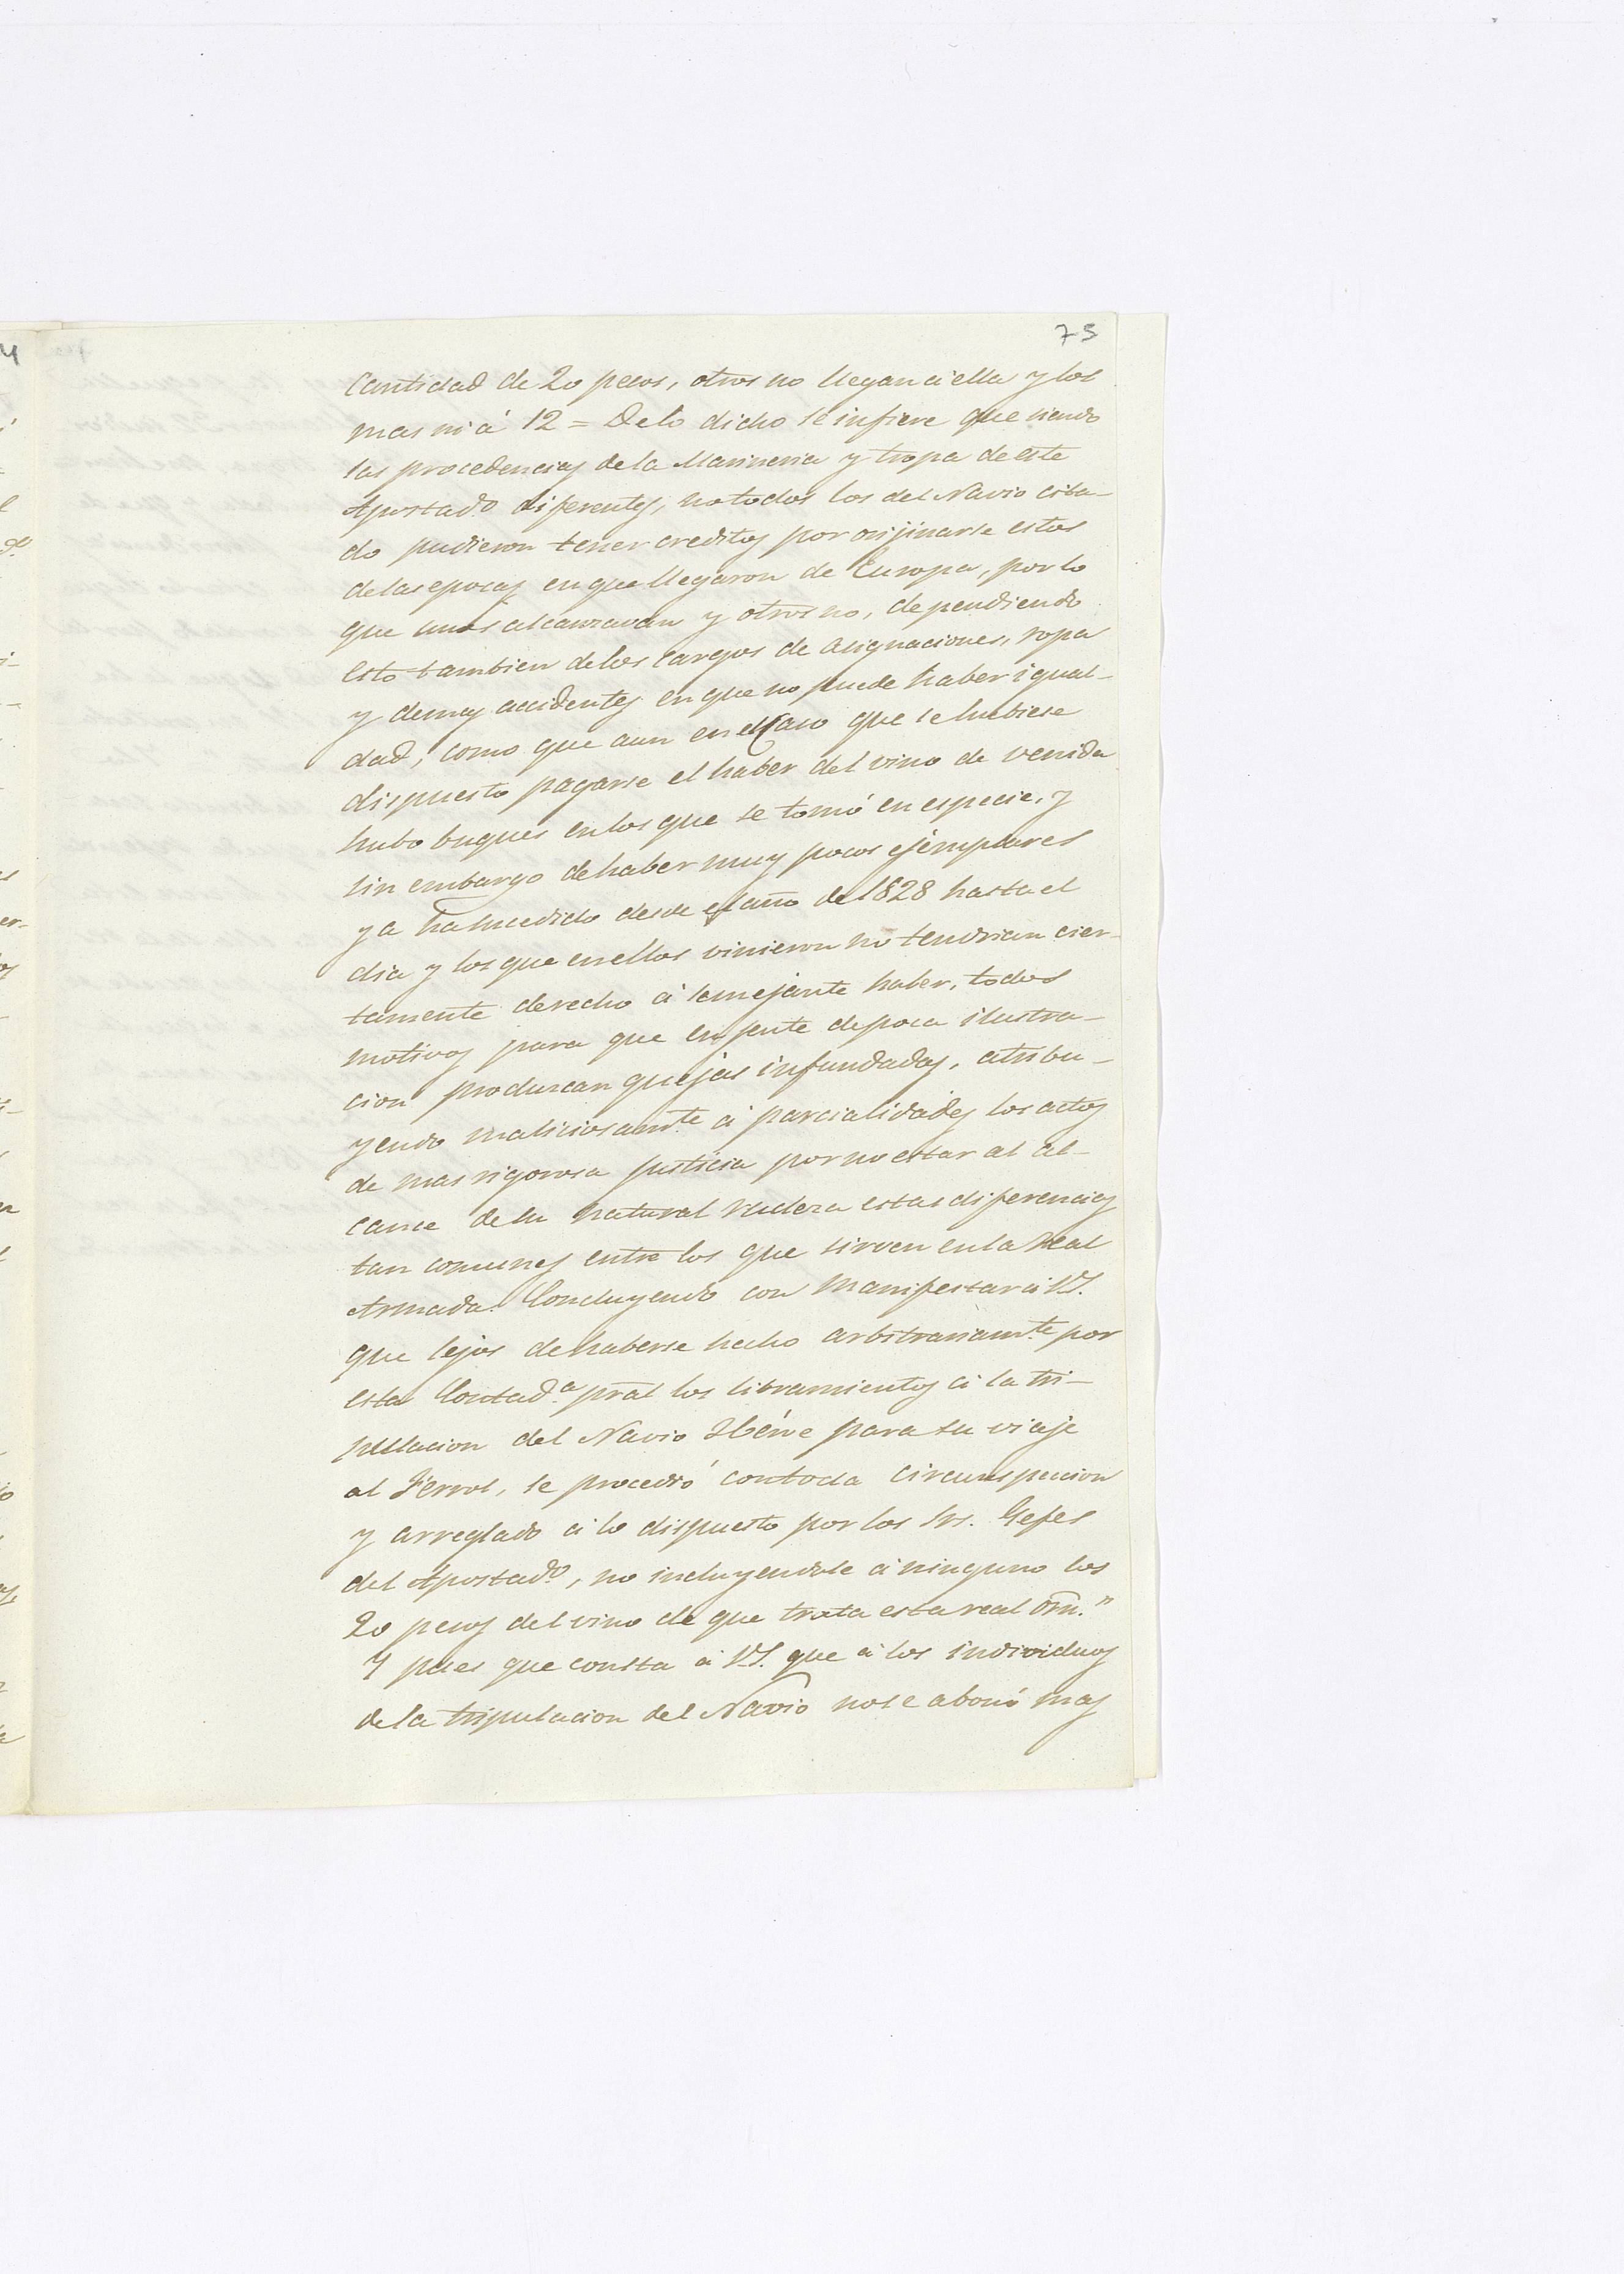 75
cantidad de 20 pesos, otros no llegan á ella y los
mas ni á 12 = De lo dicho se infiere que siendo
las procedencias de la Marineria y tropa de este
Apostad.º diferentes, no todos los del Navio cita-
do pudieron tener creditos por orijinarse estos
de las epocas en que llegaron de Europa, por lo
que unos alcanzavan y otros no, dependiendo
esto tambien de los cargos de asignaciones, ropa
y demas accidentes en que no puede haber igual-
dad, como que aun en el caso que se hubiese
dispuesto pagarse el haber del vino de venida
hubo buques en los que se tomó en especie, y
sin embargo de haber muy pocos ejemplares
ya ha sucedido desde el año de 1828 hasta el
dia y los que en ellos vinieron no tendrian cier-
tamente derecho á semejante haber, todos
motivos para que en jente de poca ilustra-
cion produzcan quejas infundadas, atribu-
yendo maliciosam.te á parcialidades los actos
de mas rigorosa justicia por no estar al al-
cance de su natural rudeza estas diferencias
tan comunes entre los que sirven en la Real
Armada. Concluyendo con manifestar á V.S.
que lejos de haberse hecho arbitrariam.te por
esta Contad.ª pral los libramientos á la tri-
pulacion del Navio Héroe para su viaje
al Ferrol, se procedió con toda circunspeccion
y arreglado á lo dispuesto por los Srs. Gefes
del Apostad.º, no incluyendole á ninguno los
20 pesos del vino de que trata esta real orn.n
Y pues que consta á V.S. que á los individuos
de la tripulacion del Navio no se abonó mas